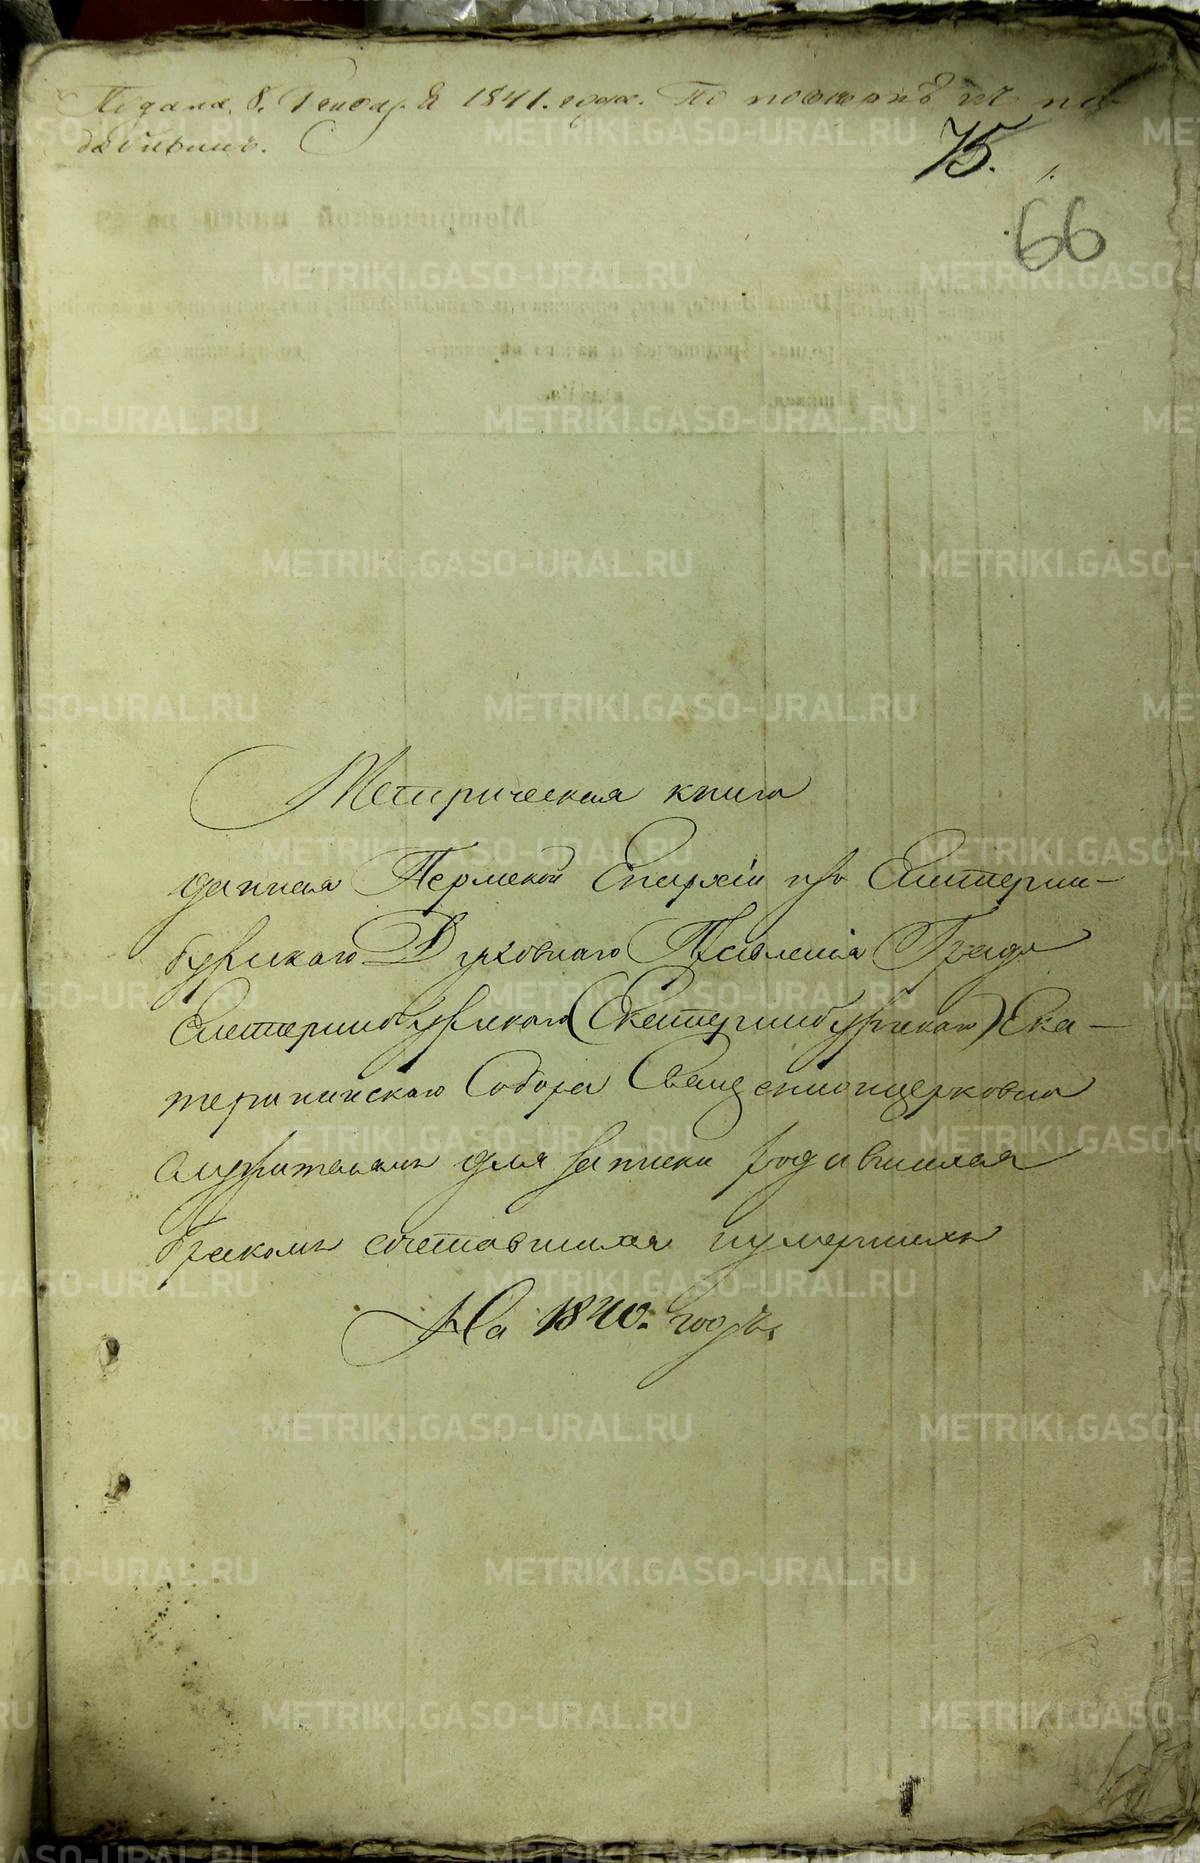 Подана 8. Генваря 1841. года. По
75.
1.
66
Метрическая книга
данная Пермской Епархіи изъ Екатерин-
бургскаго Духовнаго Правленія Града
Екатеринбурга (Екатеринбургскаго) Ека-
терининскаго Собора Священноцерковно
служителямъ для записки родившихся
бракомъ сочетавшихся и умершихъ
На 1840. годъ.